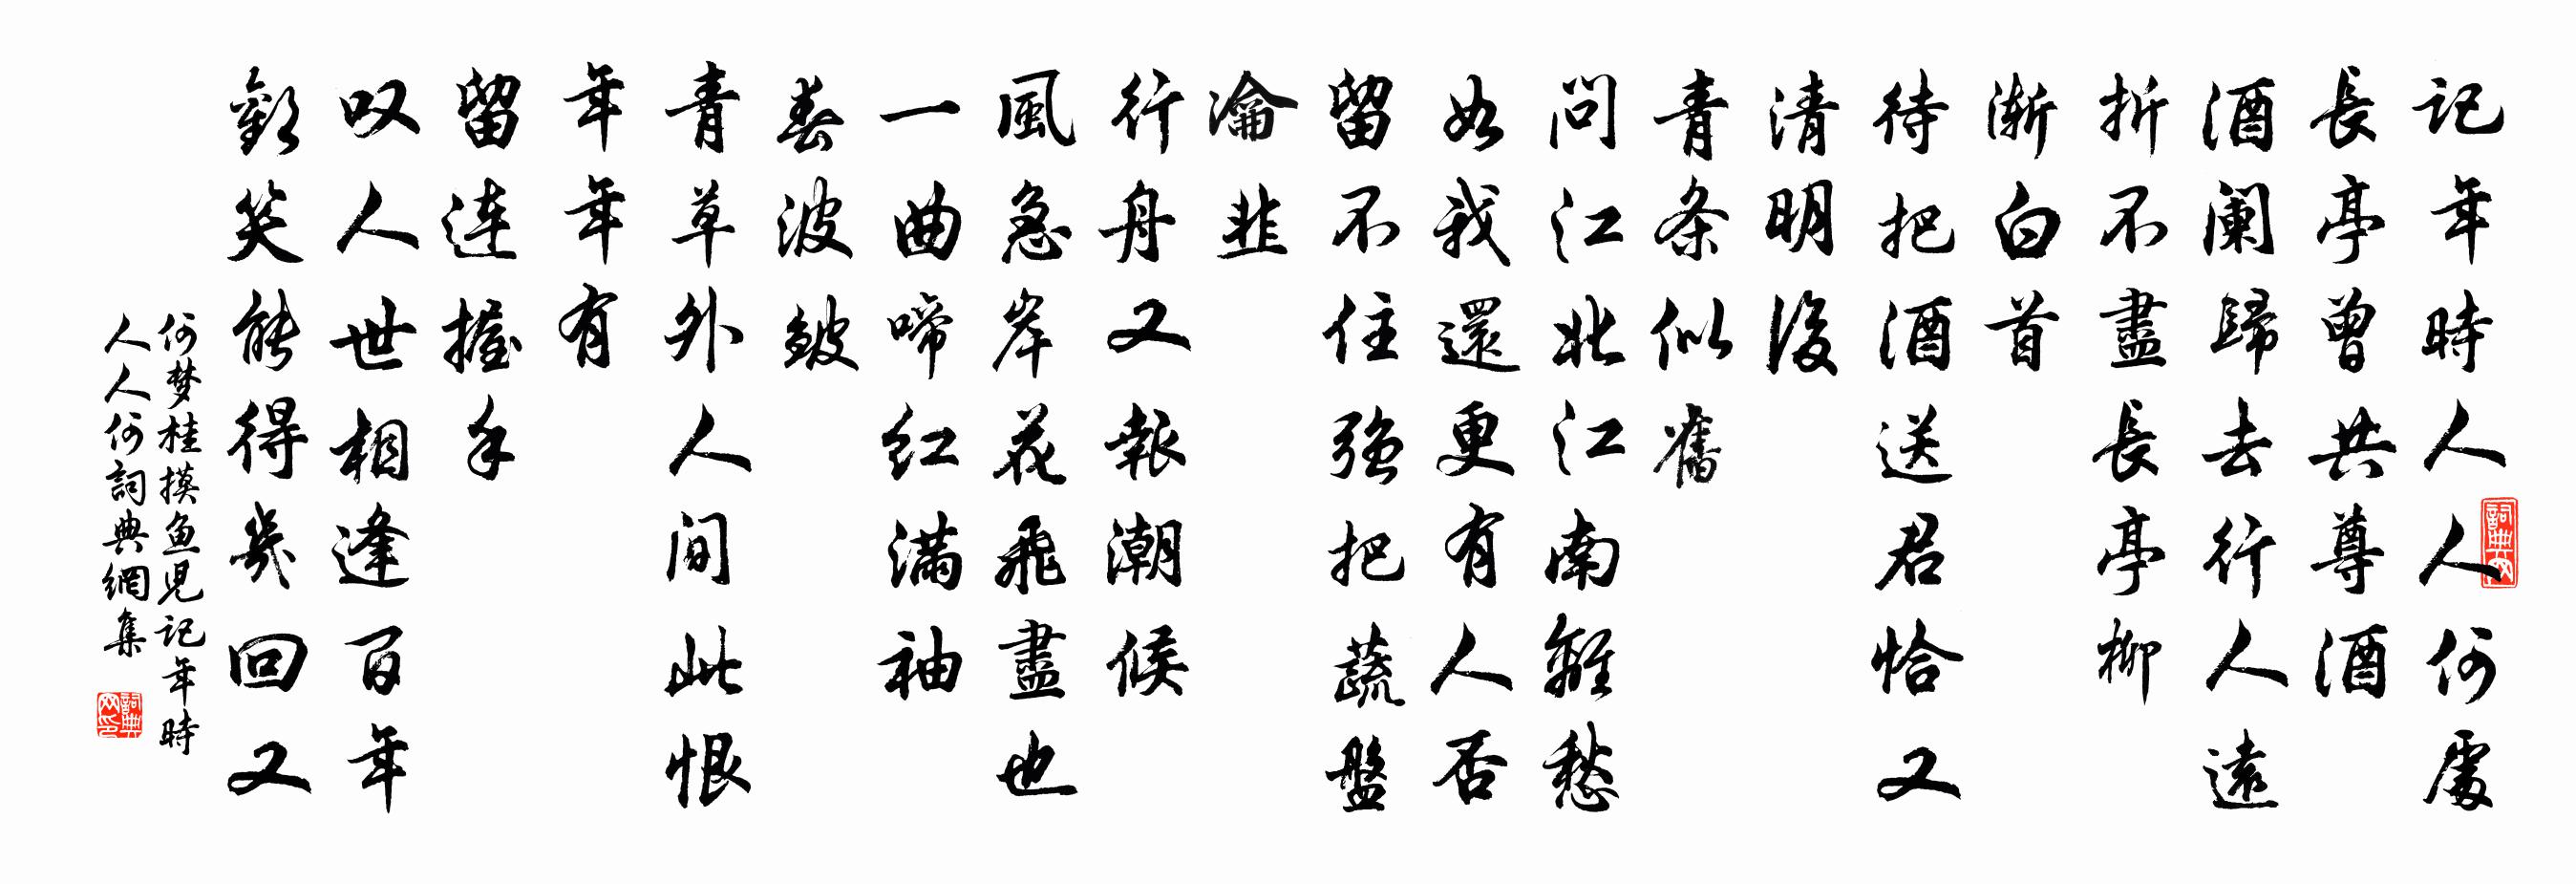 記年時人人何處
長亭曾共尊酒
酒闌歸去行人遠
折不盡長亭柳
漸白首
待把酒送君恰又
清明後
青条似舊
問江北江南離愁
如我還更有人否
留不住强把蔬盤
瀹韭
行舟又報潮候
風急岸花飛盡也
一曲啼红滿袖
春波皺
青草外人间此恨
年年有
留连握手
叹人世相逢百年
歡笑能得幾回又
何梦桂摸鱼児記年時
人人何詞典網集
詞典网
詞典网印